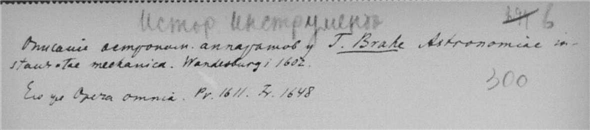 Истор Инструменты
6
Описание астроном. аппаратов у T. Brahe Astronomiae in-
stauratae mechanica. Wandesburgi 1602.
Его же Opera omnia. Pr. 1611. Fr. 1648
300